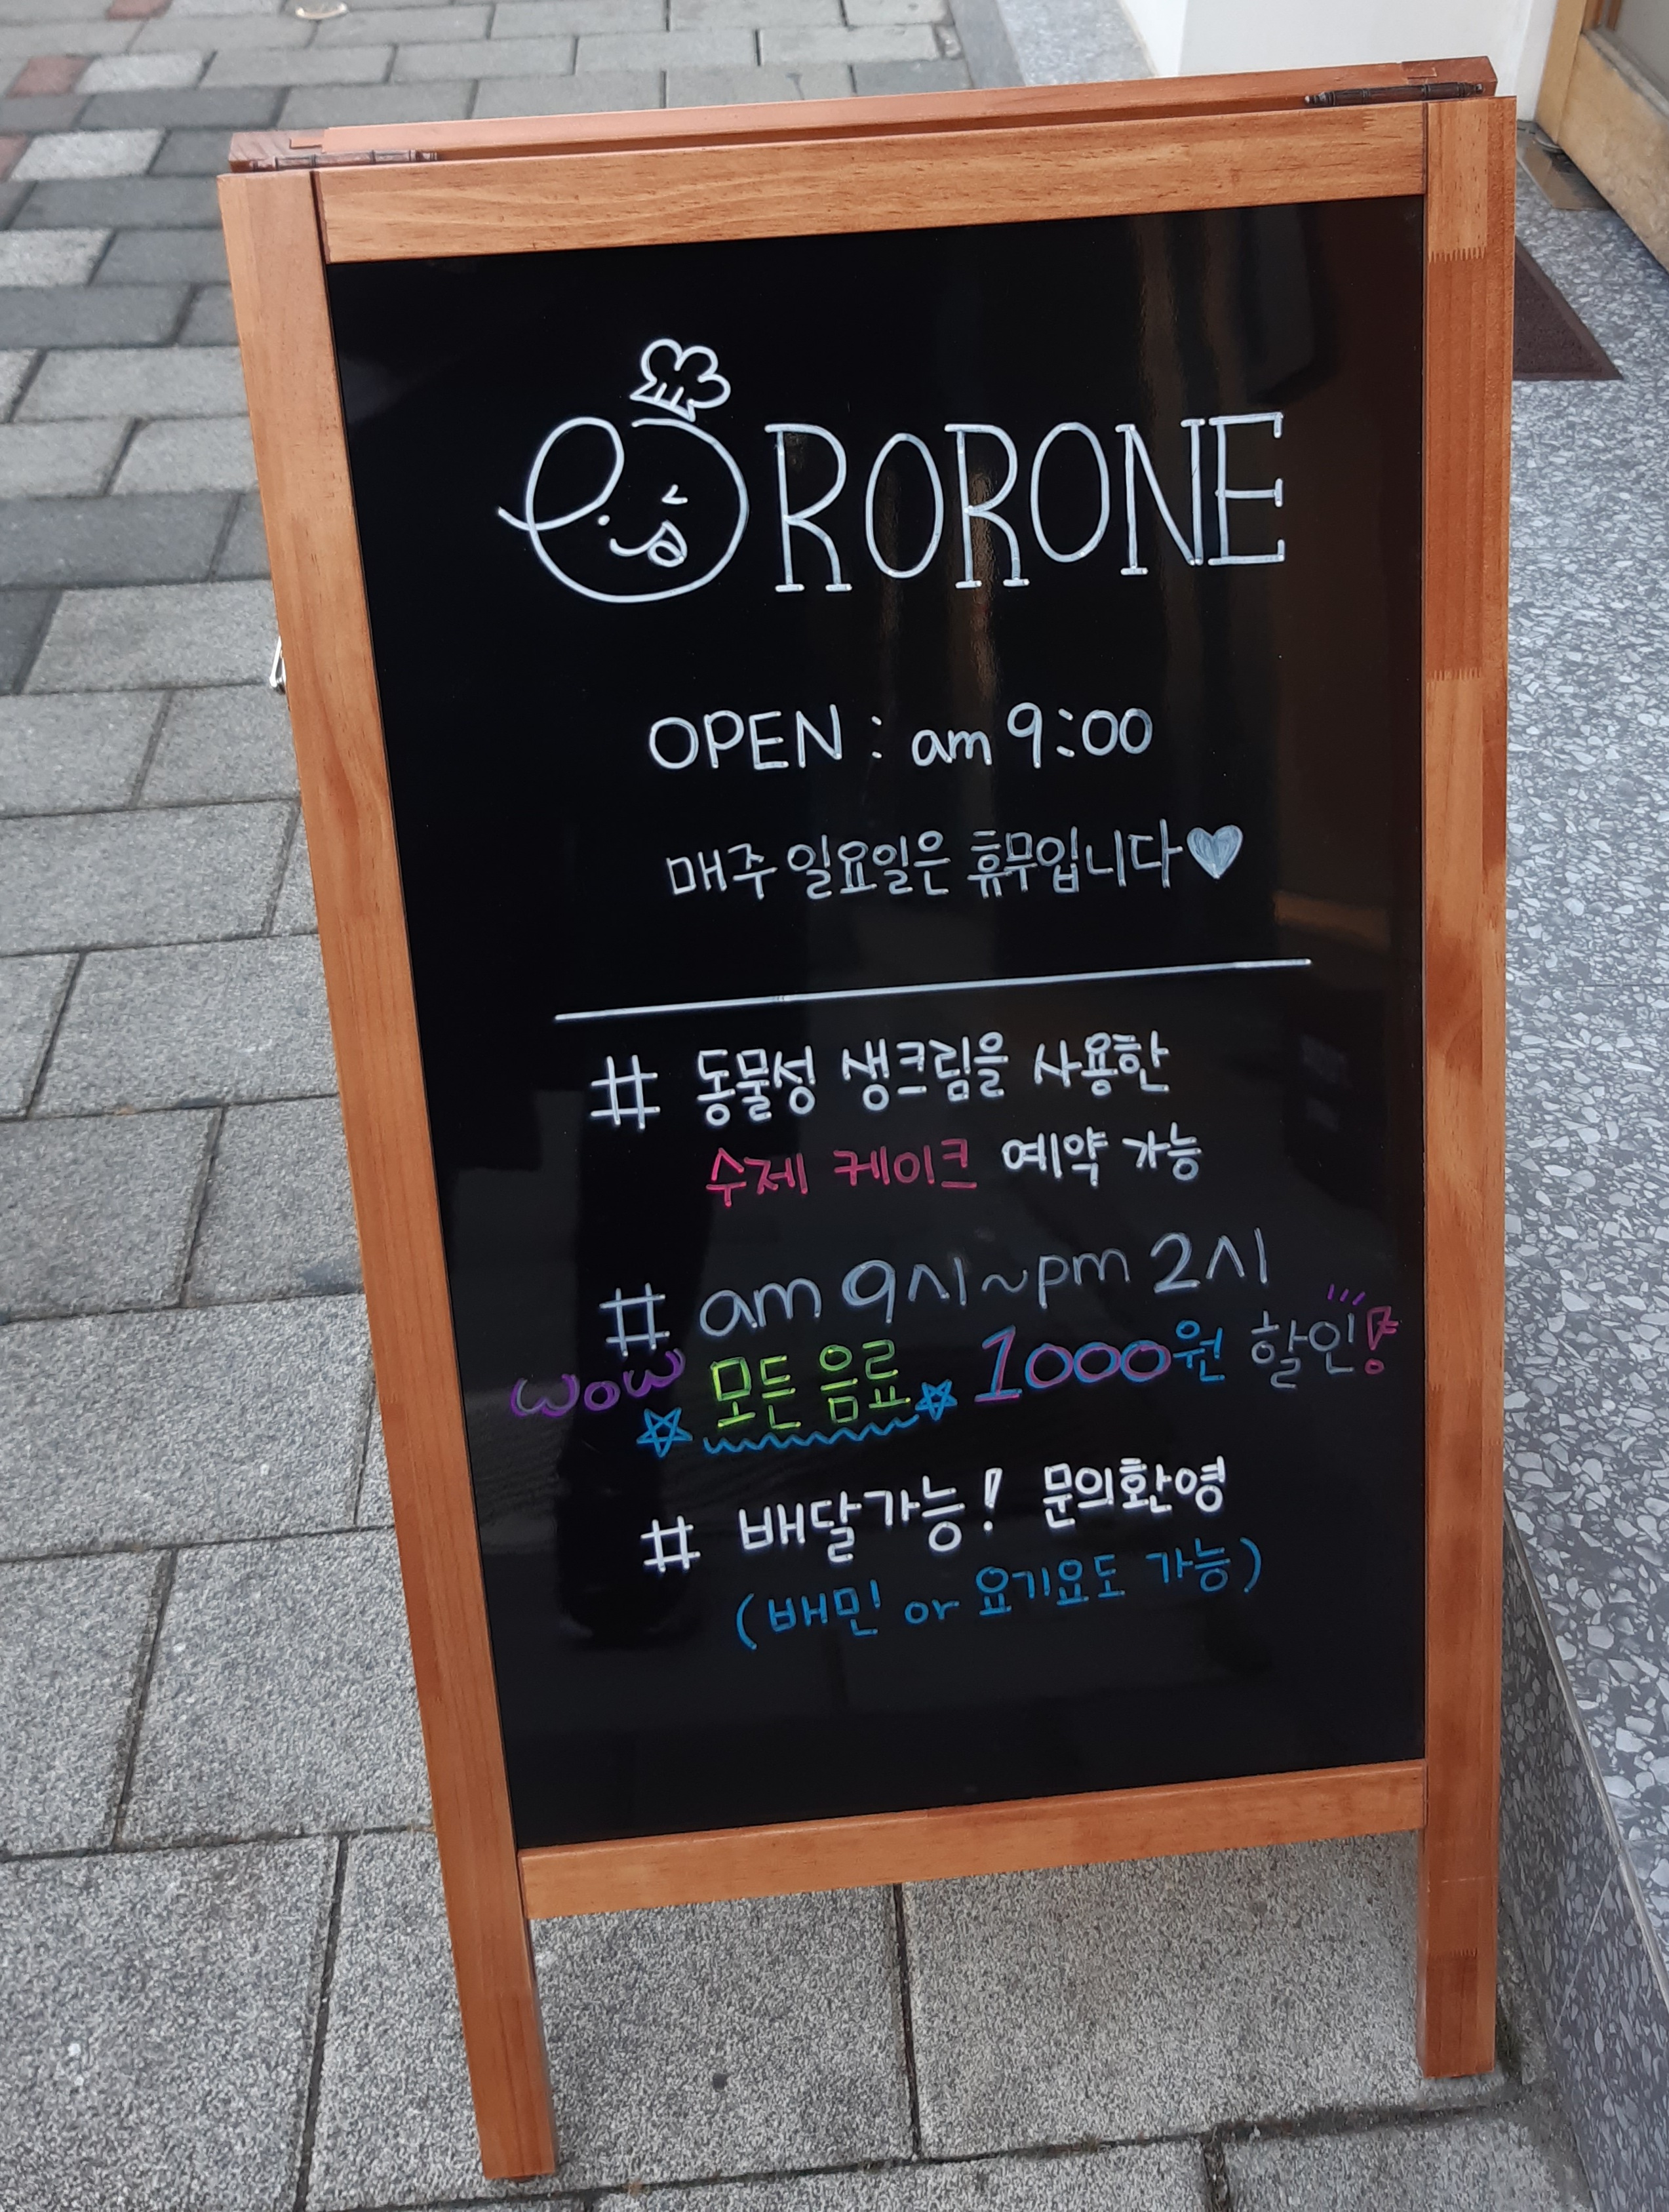 RORONE
OPEN : am 9:00
매주 일요일은 휴무입니다♥
# 동물성 생크림을 사용한
수제 케이크 예약 가능
# am 9시~pm 2시
wow 모든 음료 1000원 할인!
# 배달가능! 문의환영
(배민 or 요기요도 가능)